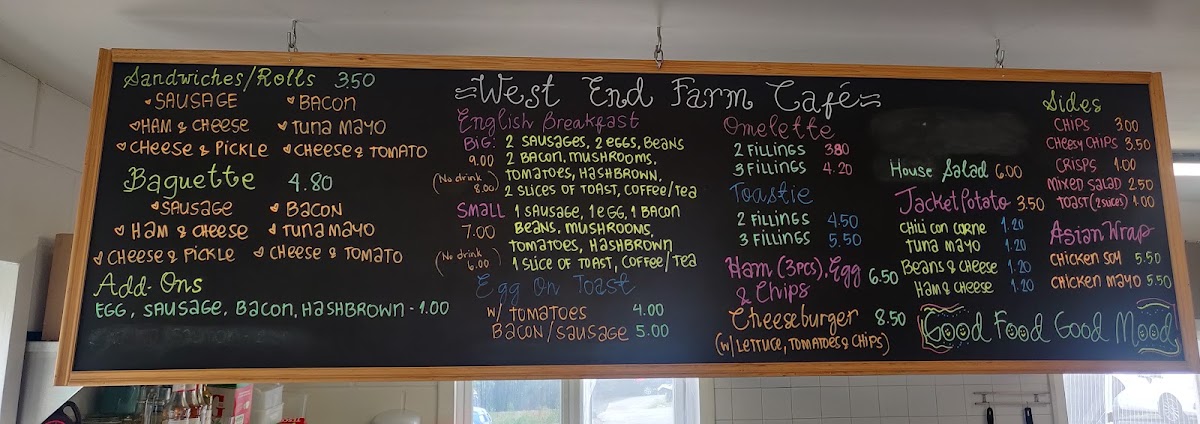 West End Farm Café
Sandwiches/Rolls 3.50
SAUSAGE BACON
HAM & CHEESE TUNA MAYO
CHEESE & PICKLE CHEESE & TOMATO
Baguette 4.80
SAUSAGE BACON
HAM & CHEESE TUNA MAYO
CHEESE & PICKLE CHEESE & TOMATO
Add-Ons
EGG, SAUSAGE, BACON, HASHBROWN - 1.00
English Breakfast
BIG: 2 SAUSAGES, 2 EGGS, BEANS
9.00 2 BACON, MUSHROOMS,
(No drink 8.00) TOMATOES, HASHBROWN,
2 SLICES OF TOAST, COFFEE/TEA
SMALL 1 SAUSAGE, 1 EGG, 1 BACON
7.00 BEANS, MUSHROOMS,
(No drink 6.00) TOMATOES, HASHBROWN
1 SLICE OF TOAST, COFFEE/TEA
Egg On Toast
W/ TOMATOES 4.00
BACON/SAUSAGE 5.00
Omelette
2 FILLINGS 3.80
3 FILLINGS 4.20
Toastie
2 FILLINGS 4.50
3 FILLINGS 5.50
Ham (3PCS), Egg
& Chips 6.50
Cheeseburger 8.50
(W/ LETTUCE, TOMATOES & CHIPS)
House Salad 6.00
Jacket Potato 3.50
CHILI CON CARNE 1.20
TUNA MAYO 1.20
BEANS & CHEESE 1.20
HAM & CHEESE 1.20
Sides
CHIPS 3.00
CHEESY CHIPS 3.50
CRISPS 1.00
MIXED SALAD 2.50
TOAST (2 SLICES) 1.00
Asian Wrap
CHICKEN SOY 5.50
CHICKEN MAYO 5.50
Good Food Good Mood